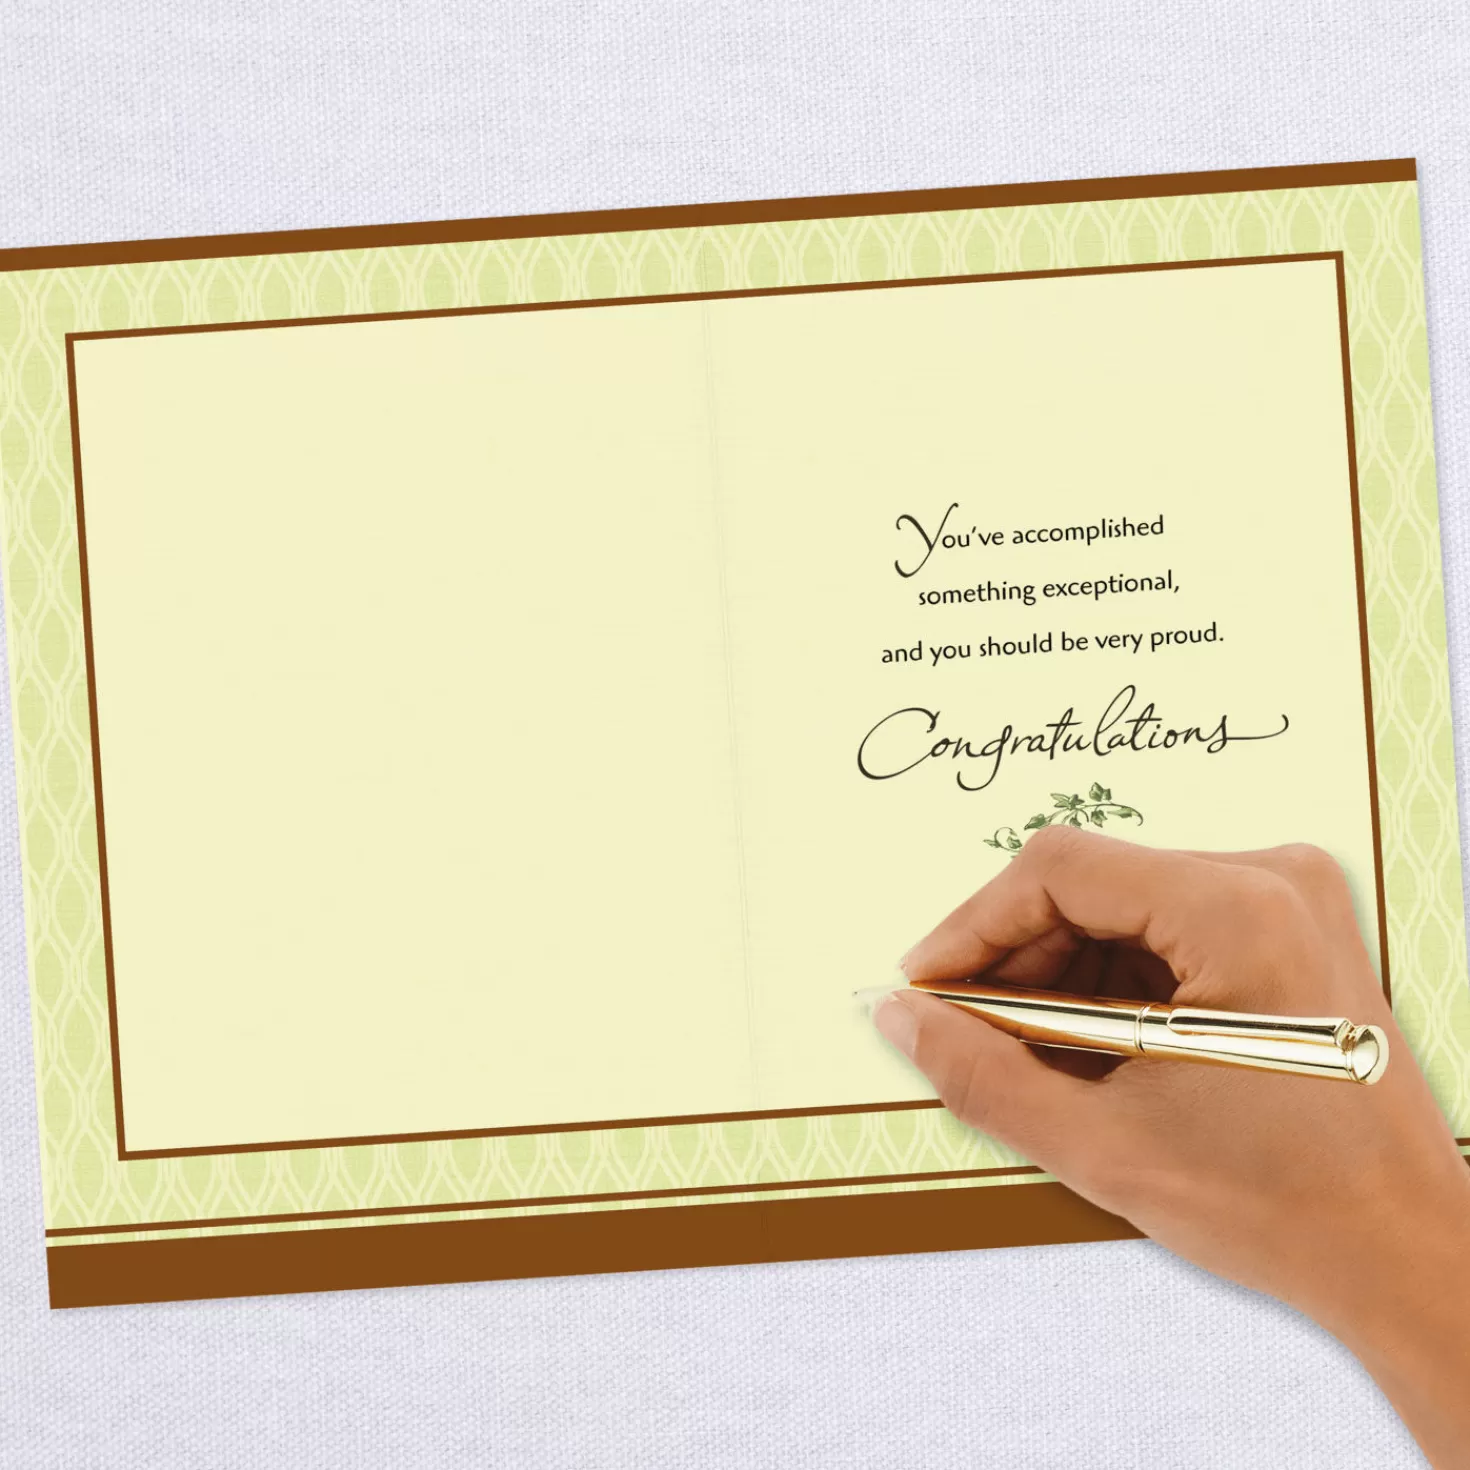 You've accomplished
something exceptional,
and you should be very proud.
Congratulations